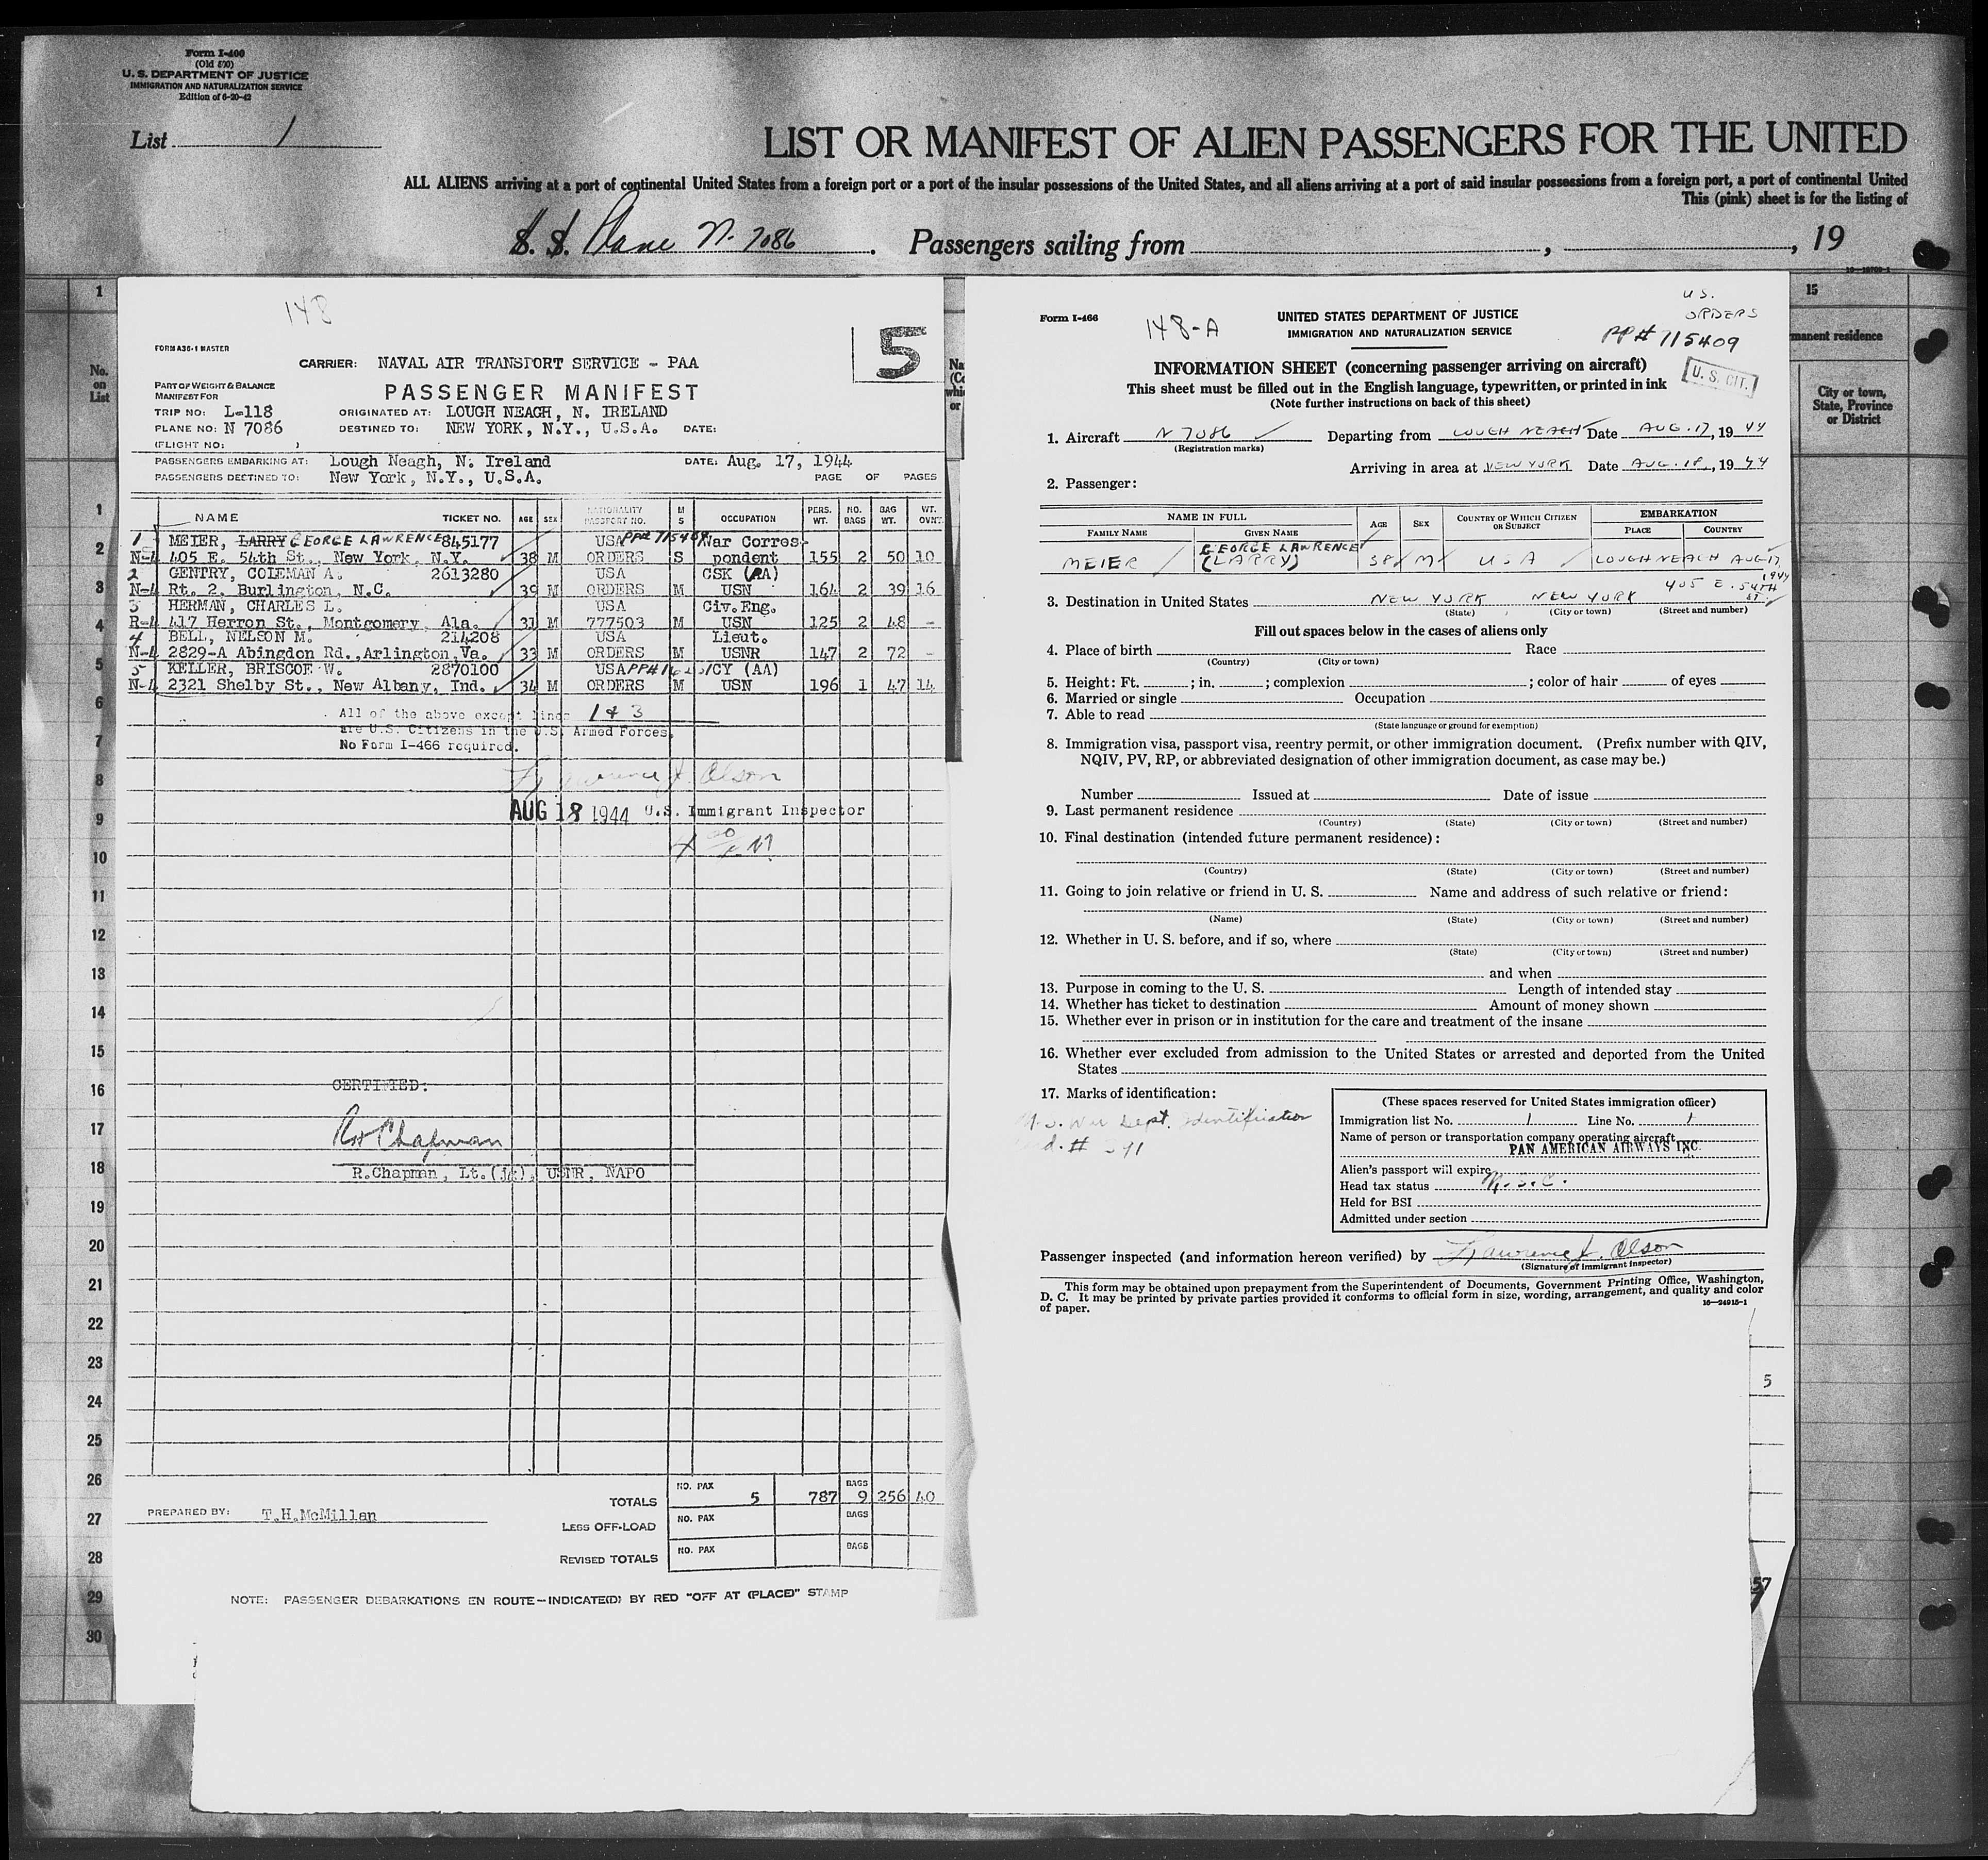 Form I-400
(Old 500)
U. S. DEPARTMENT OF JUSTICE
IMMIGRATION AND NATURALIZATION SERVICE
Edition of 6-20-42
List 1
LIST OR MANIFEST OF ALIEN PASSENGERS FOR THE UNITED
ALL ALIENS arriving at a port of continental United States from a foreign port or a port of the insular possessions of the United States, and all aliens arriving at a port of said insular possessions from a foreign port, a port of continental United
This (pink) sheet is for the listing of
S. S. Plane N. 7086. Passengers sailing from , , 19
148
FORM A36-1 MASTER
5
CARRIER: NAVAL AIR TRANSPORT SERVICE - PAA
PART OF WEIGHT & BALANCE
MANIFEST FOR
PASSENGER MANIFEST
TRIP NO: L-118 ORIGINATED AT: LOUGH NEAGH, N. IRELAND
PLANE NO: N 7086 DESTINED TO: NEW YORK, N.Y., U.S.A. DATE:
(FLIGHT NO: )
PASSENGERS EMBARKING AT: Lough Neagh, N. Ireland DATE: Aug. 17, 1944
PASSENGERS DECTINED TO: New York, N.Y., U.S.A. PAGE OF PAGES
NAME TICKET NO. AGE SEX NATIONALITY PASSPORT NO. M S OCCUPATION PERS. WT. NO. BAGS BAG WT. WT. OVNT.
1 MEIER, LARRY GEORGE LAWRENCE 845177 USA War Corres-
N-4 405 E. 54th St., New York, N.Y. 38 M ORDERS S pondent 155 2 50 10
2 GENTRY, COLEMAN A. 2613280 USA CSK (AA)
N-4 Rt. 2, Burlington, N.C. 39 M ORDERS M USN 164 2 39 16
3 HERMAN, CHARLES L. USA Civ.Eng.
R-4 417 Herron St., Montgomery, Ala. 31 M 777503 M USN 125 2 48 -
4 BELL, NELSON M. 214208 USA Lieut.
N-4 2829-A Abingdon Rd.,Arlington,Va. 33 M ORDERS M USNR 147 2 72 -
5 KELLER, BRISCOE W. 2870100 USA CY (AA)
N-4 2321 Shelby St., New Albany, Ind. 34 M ORDERS M USN 196 1 47 14
All of the above except lines 1 & 3
are U.S. Citizens in the U.S. Armed Forces.
No Form I-466 required.
Lawrence J. Olson
AUG 18 1944 U.S. Immigrant Inspector
CERTIFIED:
R Chapman
R.Chapman, Lt.(jg), USNR, NAPO
NO. PAX BAGS
TOTALS 5 787 9 256 40
PREPARED BY: T.H.McMillan
LESS OFF-LOAD NO. PAX BAGS
REVISED TOTALS NO. PAX BAGS
NOTE: PASSENGER DEBARKATIONS EN ROUTE-INDICATE(D) BY RED "OFF AT (PLACE)" STAMP
No.
on
List
1
2
3
4
5
6
7
8
9
10
11
12
13
14
15
16
17
18
19
20
21
22
23
24
25
26
27
28
29
30
Form I-466
148-A
UNITED STATES DEPARTMENT OF JUSTICE
IMMIGRATION AND NATURALIZATION SERVICE
U.S.
ORDERS
PP# 715409
U. S. CIT.
INFORMATION SHEET (concerning passenger arriving on aircraft)
This sheet must be filled out in the English language, typewritten, or printed in ink
(Note further instructions on back of this sheet)
1. Aircraft N 7086 Departing from LOUGH NEAGH Date AUG. 17, 1944
(Registration marks)
Arriving in area at NEW YORK Date AUG. 18, 1944
2. Passenger:
NAME IN FULL AGE SEX COUNTRY OF WHICH CITIZEN OR SUBJECT EMBARKATION
FAMILY NAME GIVEN NAME PLACE COUNTRY
MEIER GEORGE LAWRENCE (LARRY) 38 M USA LOUGH NEAGH AUG 17, 1944
405 E. 54TH ST.
3. Destination in United States NEW YORK NEW YORK
(State) (City or town) (Street and number)
Fill out spaces below in the cases of aliens only
4. Place of birth Race
(Country) (City or town)
5. Height: Ft. ; in. ; complexion ; color of hair of eyes
6. Married or single Occupation
7. Able to read
(State language or ground for exemption)
8. Immigration visa, passport visa, reentry permit, or other immigration document. (Prefix number with QIV,
NQIV, PV, RP, or abbreviated designation of other immigration document, as case may be.)
Number Issued at Date of issue
9. Last permanent residence
(Country) (State) (City or town) (Street and number)
10. Final destination (intended future permanent residence):
(Country) (State) (City or town) (Street and number)
11. Going to join relative or friend in U. S. Name and address of such relative or friend:
(Name) (State) (City or town) (Street and number)
12. Whether in U. S. before, and if so, where
(State) (City or town) (Street and number)
and when
13. Purpose in coming to the U. S. Length of intended stay
14. Whether has ticket to destination Amount of money shown
15. Whether ever in prison or in institution for the care and treatment of the insane
16. Whether ever excluded from admission to the United States or arrested and deported from the United
States
17. Marks of identification:
War Dept. Identification
(These spaces reserved for United States immigration officer)
Immigration list No. 1 Line No. 1
Name of person or transportation company operating aircraft
PAN AMERICAN AIRWAYS INC.
Alien's passport will expire
Head tax status
Held for BSI
Admitted under section
Passenger inspected (and information hereon verified) by Lawrence J. Olson
(Signature of immigrant inspector)
This form may be obtained upon prepayment from the Superintendent of Documents, Government Printing Office, Washington,
D. C. It may be printed by private parties provided it conforms to official form in size, wording, arrangement, and quality and color
of paper.
16-24915-1
15
manent residence
City or town,
State, Province
or District
5